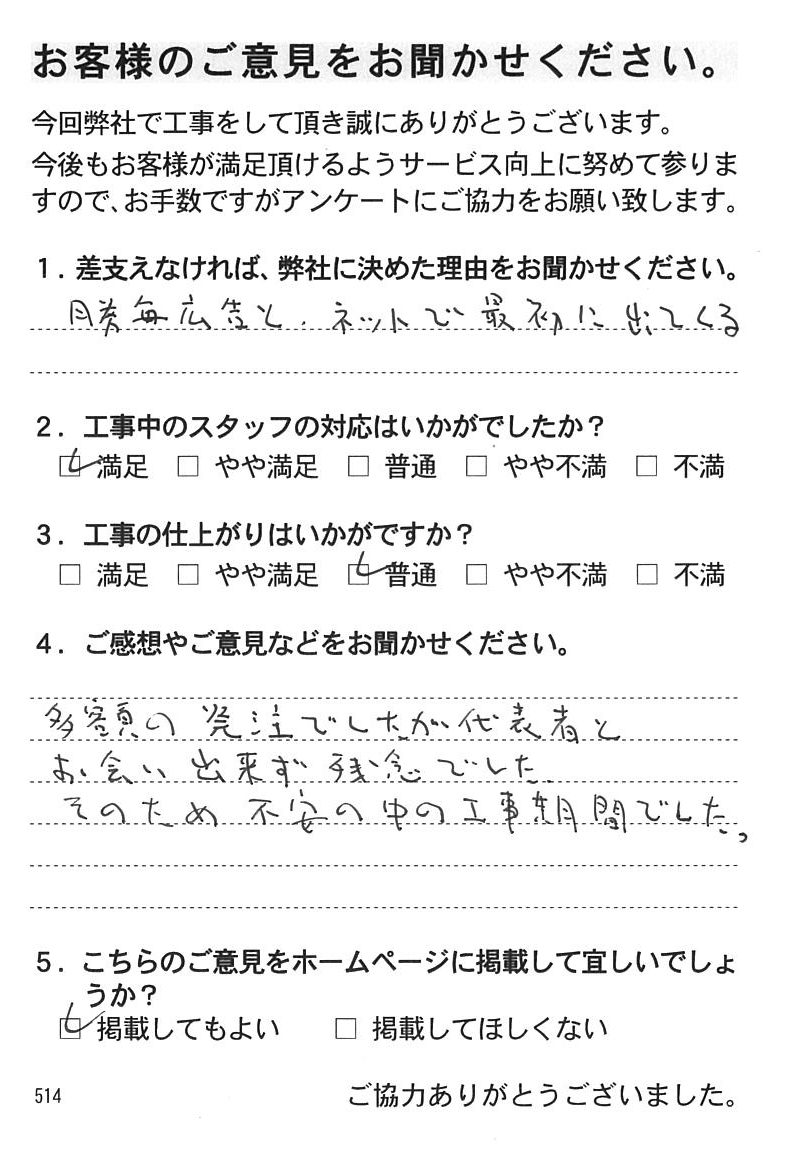 お客様のご意見をお聞かせください。
今回弊社で工事をして頂き誠にありがとうございます。
今後もお客様が満足頂けるようサービス向上に努めて参りま
すので、お手数ですがアンケートにご協力をお願い致します。
1. 差支えなければ、弊社に決めた理由をお聞かせください。
広告と、ネットで最初に出てくる
2. 工事中のスタッフの対応はいかがでしたか？
☑ 満足 □ やや満足 □ 普通 □ やや不満 □ 不満
3. 工事の仕上がりはいかがですか？
□ 満足 □ やや満足 ☑ 普通 □ やや不満 □ 不満
4. ご感想やご意見などをお聞かせください。
多額の発注でしたが代表者と
お会い出来ず残念でした
そのため不安の中の工事期間でした。
5. こちらのご意見をホームページに掲載して宜しいでしょ
うか？
☑ 掲載してもよい □ 掲載してほしくない
514 ご協力ありがとうございました。